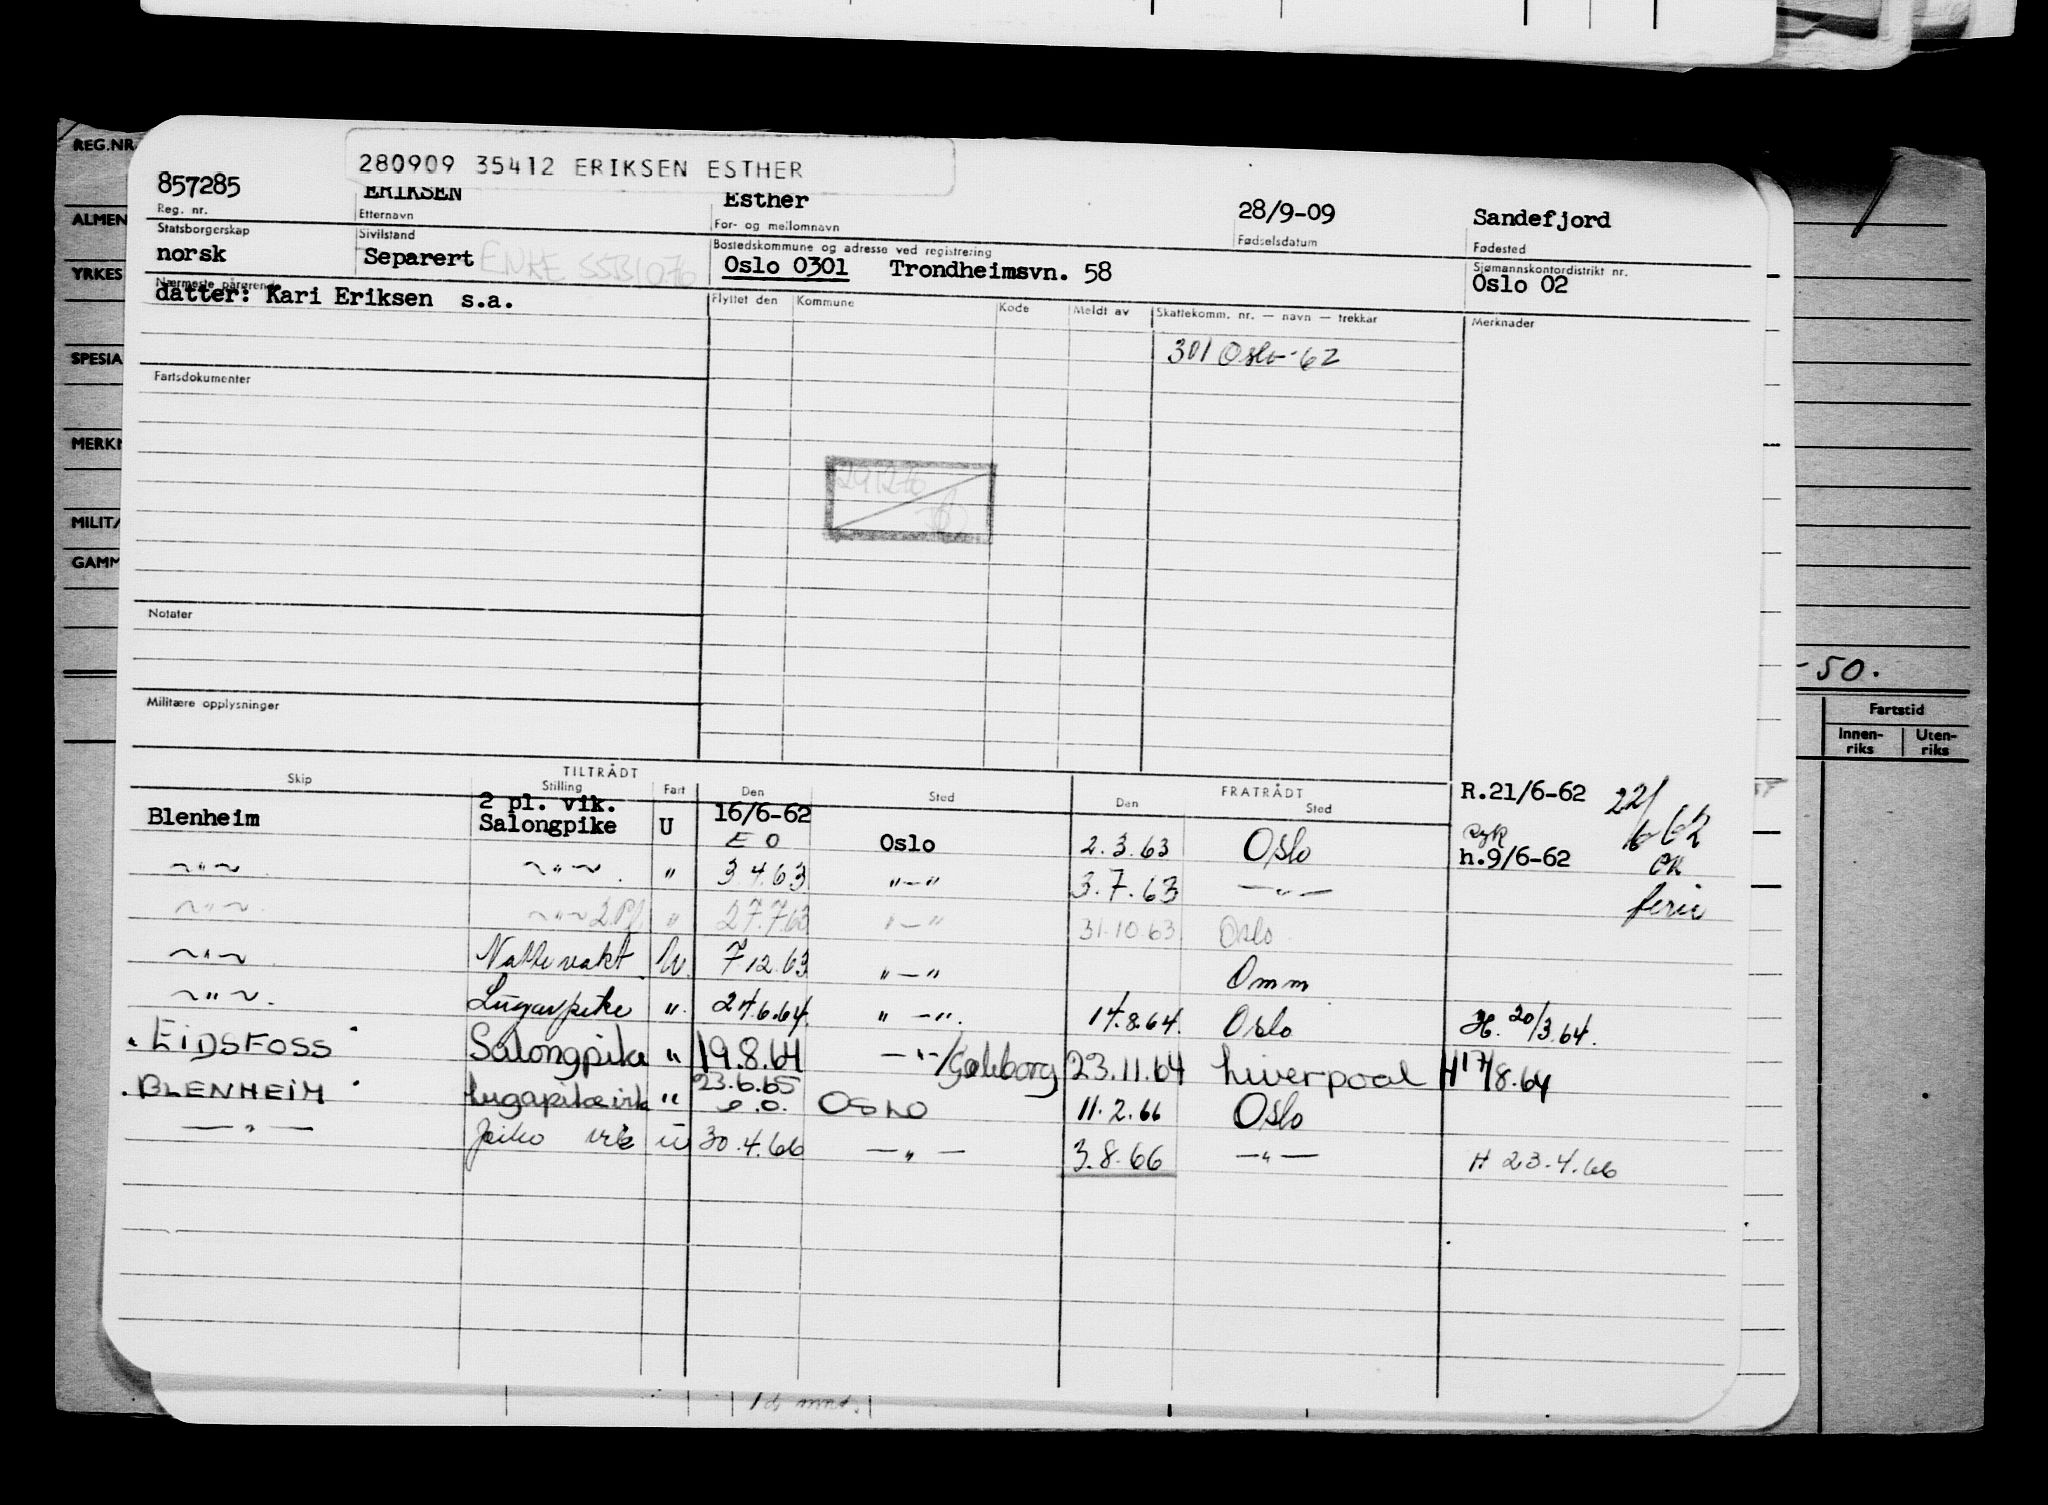 REG.NR.
280909 35412 ERIKSEN ESTHER
857285 ERIKSEN Esther 28/9-09 Sandefjord
Reg. nr. Etternavn For- og mellomnavn Fødselsdatum Fødested
ALMEN
Statsborgerskap Sivilstand Bostedskommune og adresse ved registrering Sjømannskontordistrikt nr.
norsk Separert ENKE SSB1076 Oslo 0301 Trondheimsvn. 58 Oslo 02
YRKES
Nærmeste pårørende Flyttet den Kommune Kode Meldt av Skattekomm. nr. — navn — trekkar Merknader
datter: Kari Eriksen s.a.
301 Oslo-62
SPESIA
Fartsdokumenter
MERKN
291276
MILITÆ
GAMM
Notater
-50.
Militære opplysninger
Fartstid
Innen-riks Uten-riks
TILTRÅDT FRATRÅDT
Skip Stilling Fart Den Sted Den Sted
R.21/6-62 22/6 62
Blenheim 2 pl. vik. Salongpike U 16/6-62 E O Oslo 2.3.63 Oslo h.9/6-62 OK
~"~ ~"~. " 3 4.63 "-" 3.7.63 —"— ferie
~"~. ~"~ 2 Pl " 27.7.63 "-" 31.10.63 Oslo
~"~. Nattevakt U. 7 12.63 "-" Omm
~"~. Lugarpike ". 24.6.64. "-". 14.8.64. Oslo H. 20/3.64.
EIDSFOSS Salongpike " 19.8.64 —"-/Gøteborg 23.11.64 Liverpool H 17/8.64
BLENHEIM lugapike vik " 23.6.65 e.o. OSLO 11.2.66 Oslo
—"— pike vik u 30.4.66 —"— 3.8.66 —"— H 23.4.66